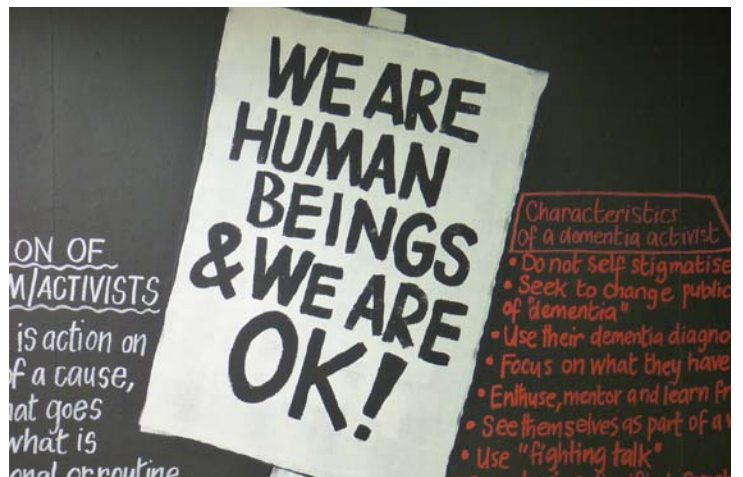 ON OF
M/ACTIVISTS
is action on
of a cause,
at goes
what is
onal or routine
WE ARE
HUMAN
BEINGS
& WE ARE
OK!
Characteristics
of a dementia activist
• Do not self stigmatise
• Seek to change public
of "dementia"
• Use their dementia diagno
• Focus on what they have
• Enthuse, mentor and learn fr
• See themselves as part of a w
• Use "fighting talk"